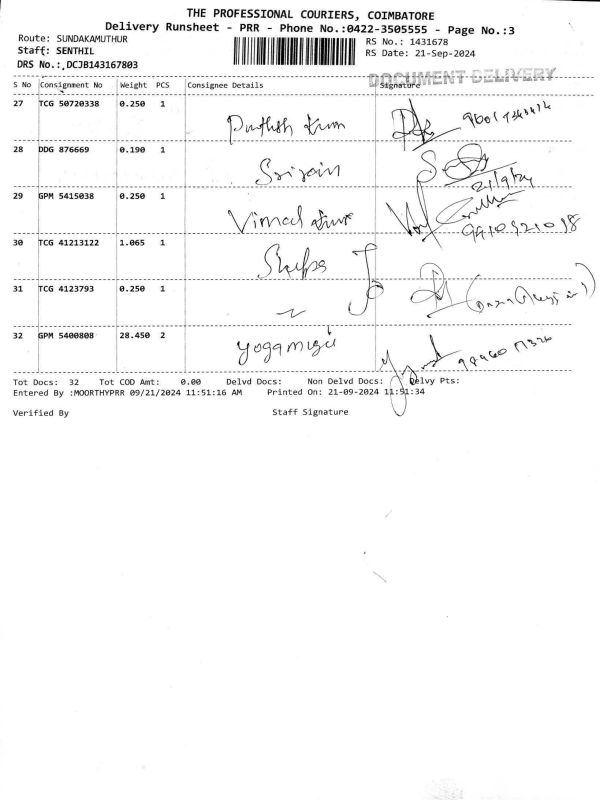 THE PROFESSIONAL COURIERS, COIMBATORE
Delivery Runsheet - PRR - Phone No.:0422-3505555 - Page No.:3
Route: SUNDAKAMUTHUR RS No.: 1431678
Staff: SENTHIL RS Date: 21-Sep-2024
DRS No.: DCJB143167803
DOCUMENT DELIVERY
S No Consignment No Weight PCS Consignee Details Signature
27 TCG 50720338 0.250 1
28 DDG 876669 0.190 1 Sriram
21/9/24
29 GPM 5415038 0.250 1 Vimal
30 TCG 41213122 1.065 1
31 TCG 4123793 0.250 1
32 GPM 5400808 28.450 2
Tot Docs: 32 Tot COD Amt: 0.00 Delvd Docs: Non Delvd Docs: Delvy Pts:
Entered By :MOORTHYPRR 09/21/2024 11:51:16 AM Printed On: 21-09-2024 11:51:34
Verified By Staff Signature